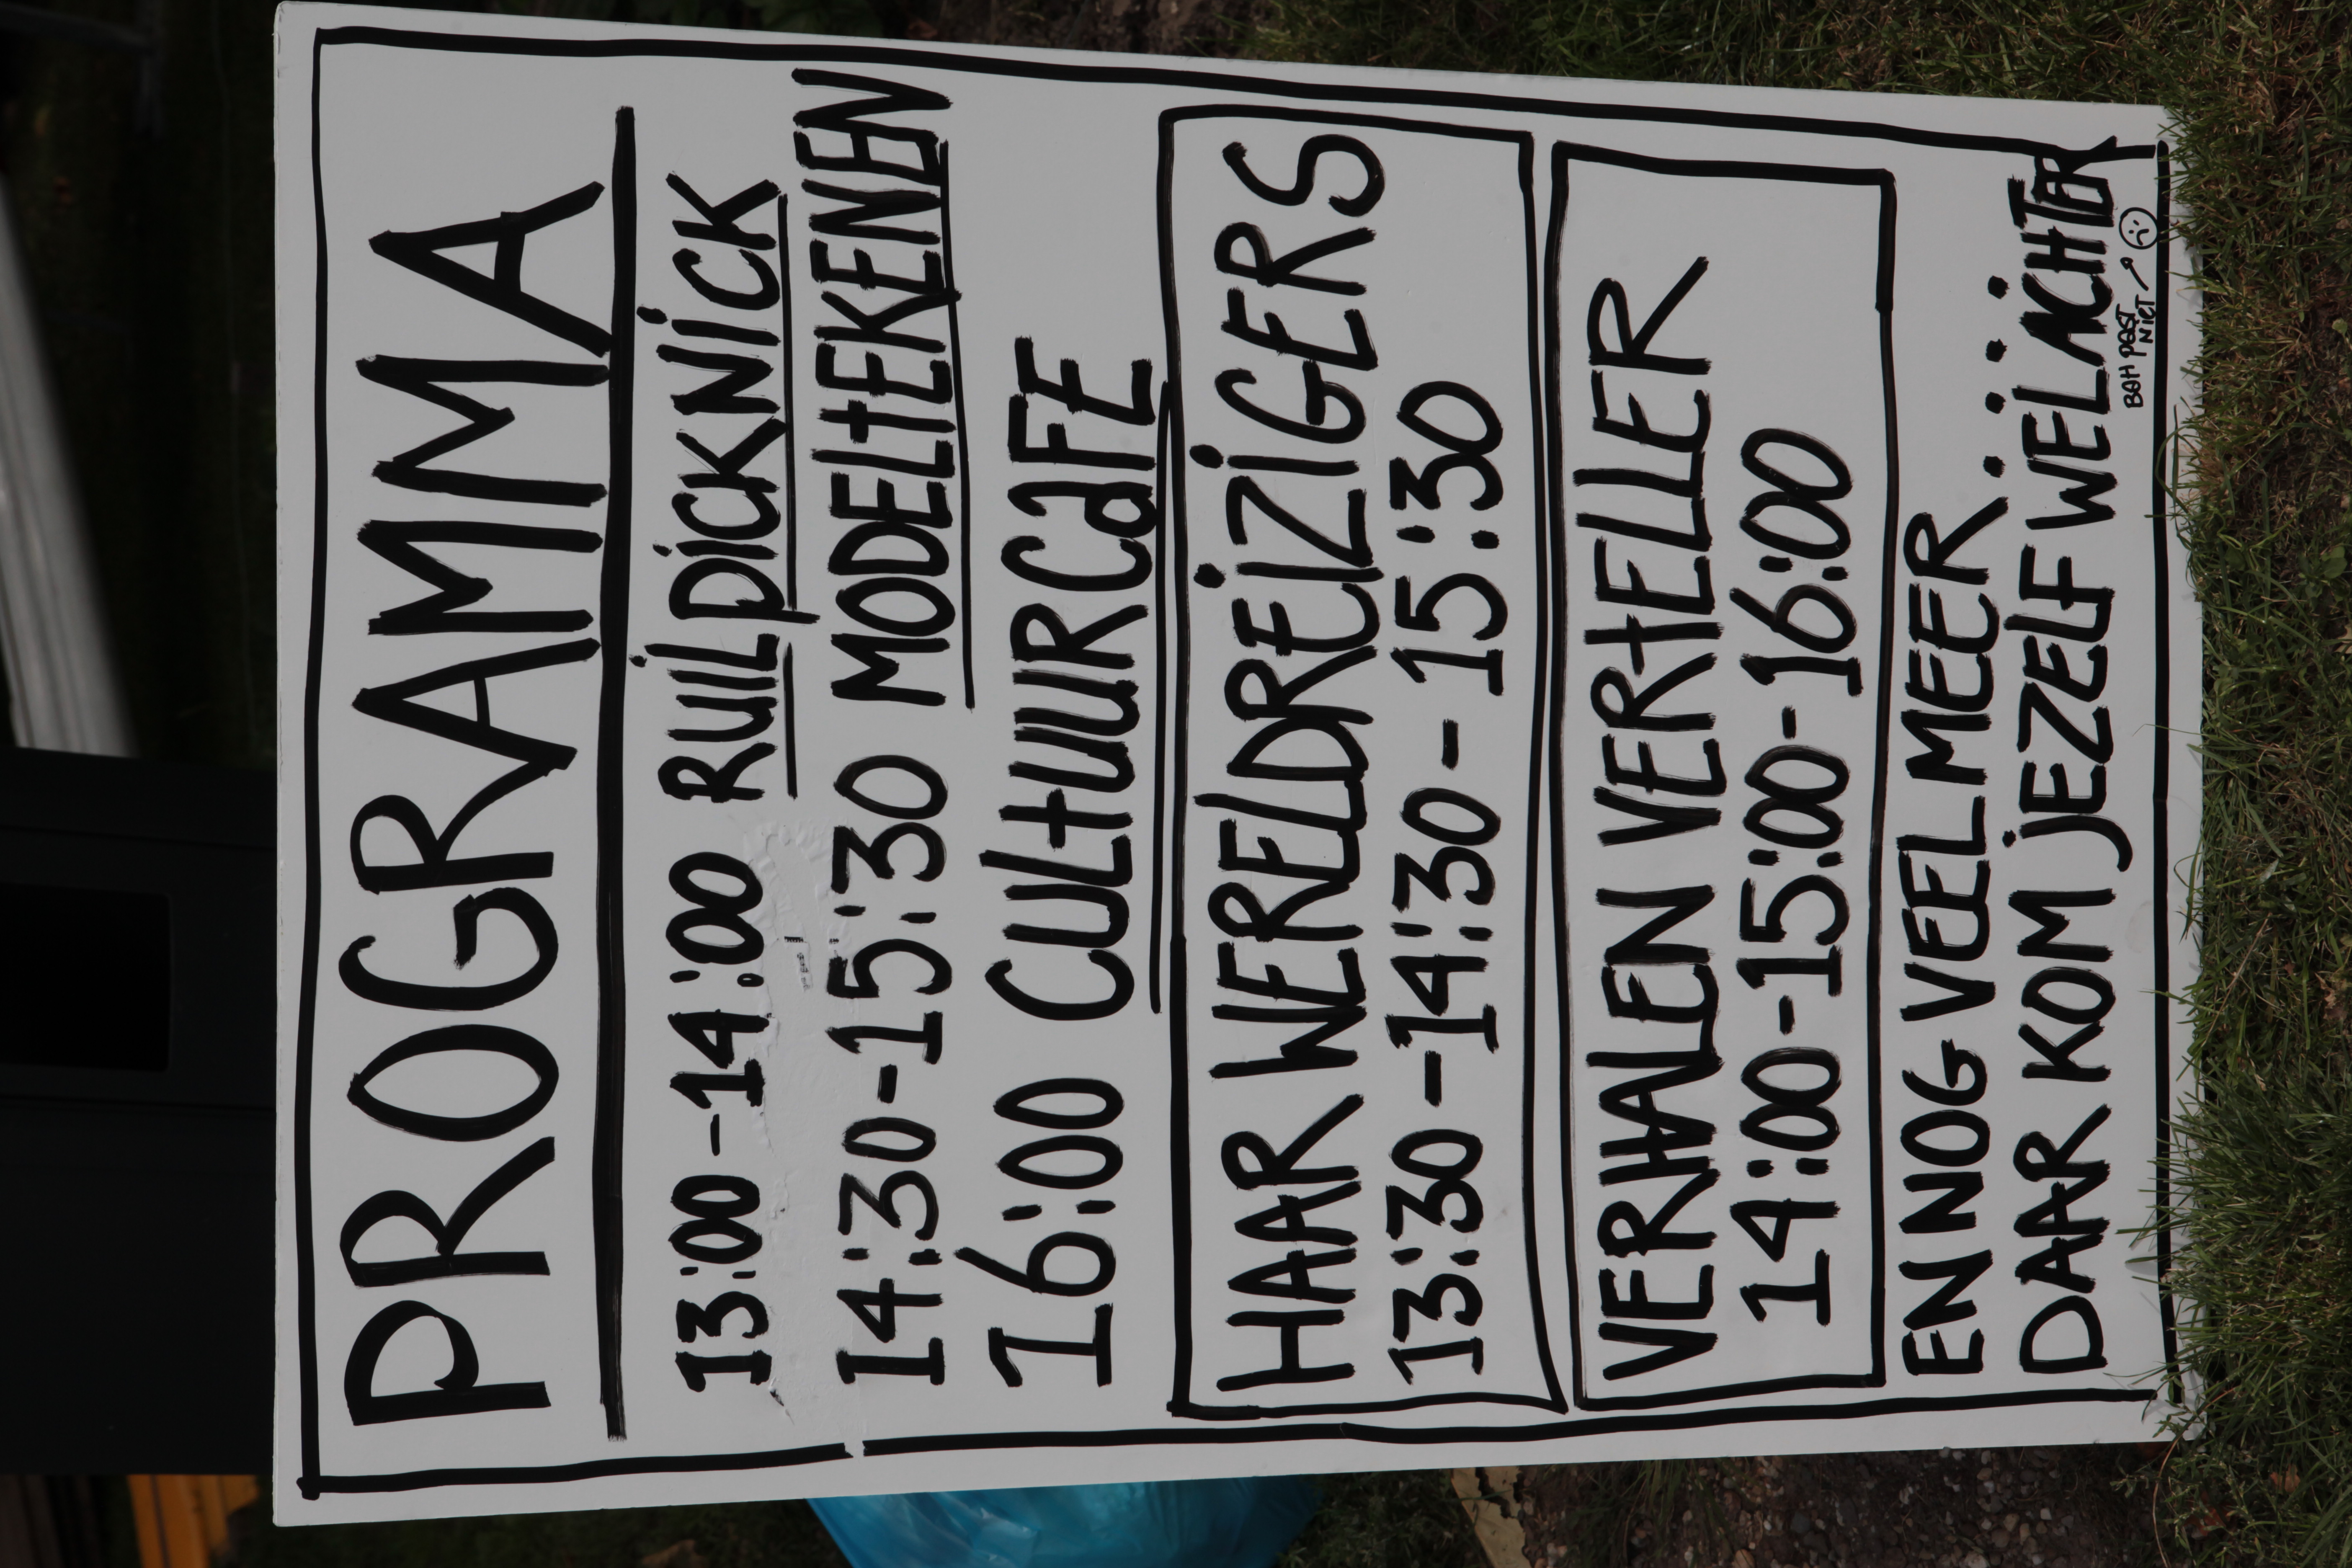 PROGRAMMA
13:00-14:00 RUiLPiCKNiCK
14:30-15:30 MODELtEKENEN
16:00 CULtUURCaFE
HAAR WERELDREiZiGERS
13:30-14:30-15:30
VERHALEN VERtELLER
14:00-15:00-16:00
EN NOG VEEL MEER....
DAAR KOM jEZELF WEL ACHTER
BAH PAST
NiET